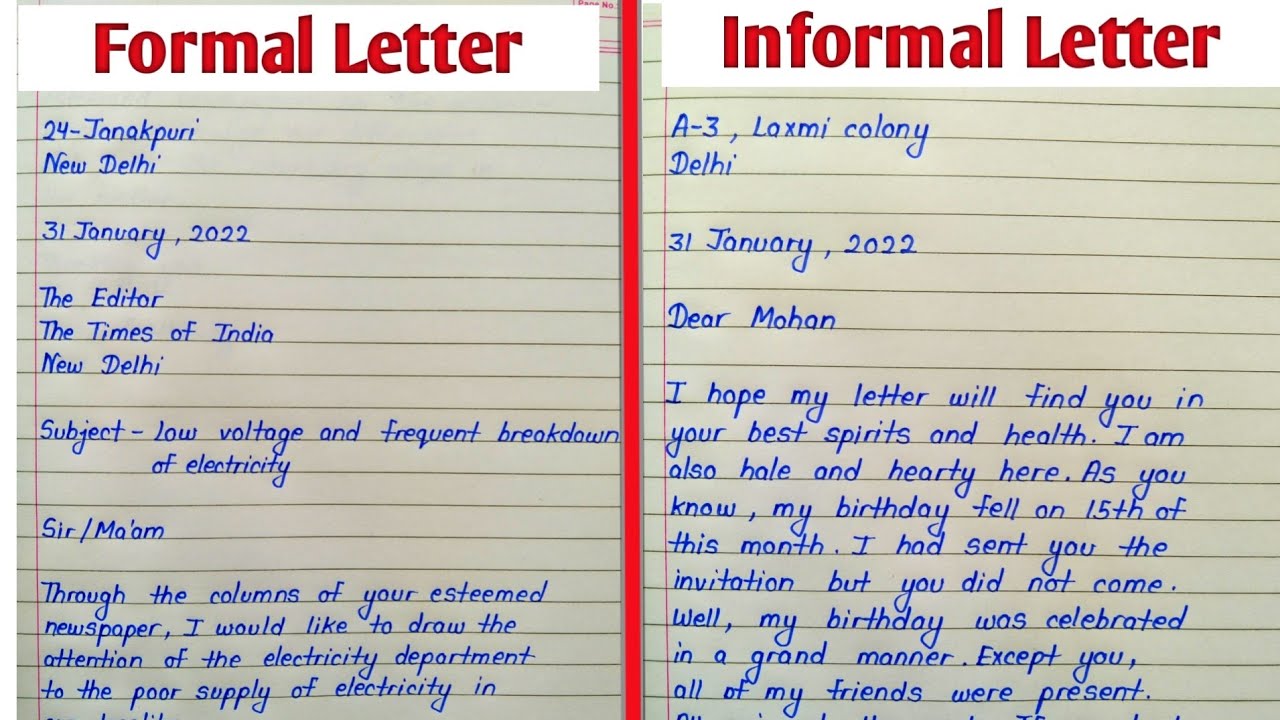 Page No.:
Formal Letter
24-Janakpuri
New Delhi
31 January, 2022
The Editor
The Times of India
New Delhi
Subject - low voltage and frequent breakdown
of electricity
Sir/Ma'am
Through the columns of your esteemed
newspaper, I would like to draw the
attention of the electricity department
to the poor supply of electricity in
Informal Letter
A-3, Laxmi colony
Delhi
31 January, 2022
Dear Mohan
I hope my letter will find you in
your best spirits and health. I am
also hale and hearty here. As you
know, my birthday fell on 15th of
this month. I had sent you the
invitation but you did not come.
Well, my birthday was celebrated
in a grand manner. Except you,
all of my friends were present.